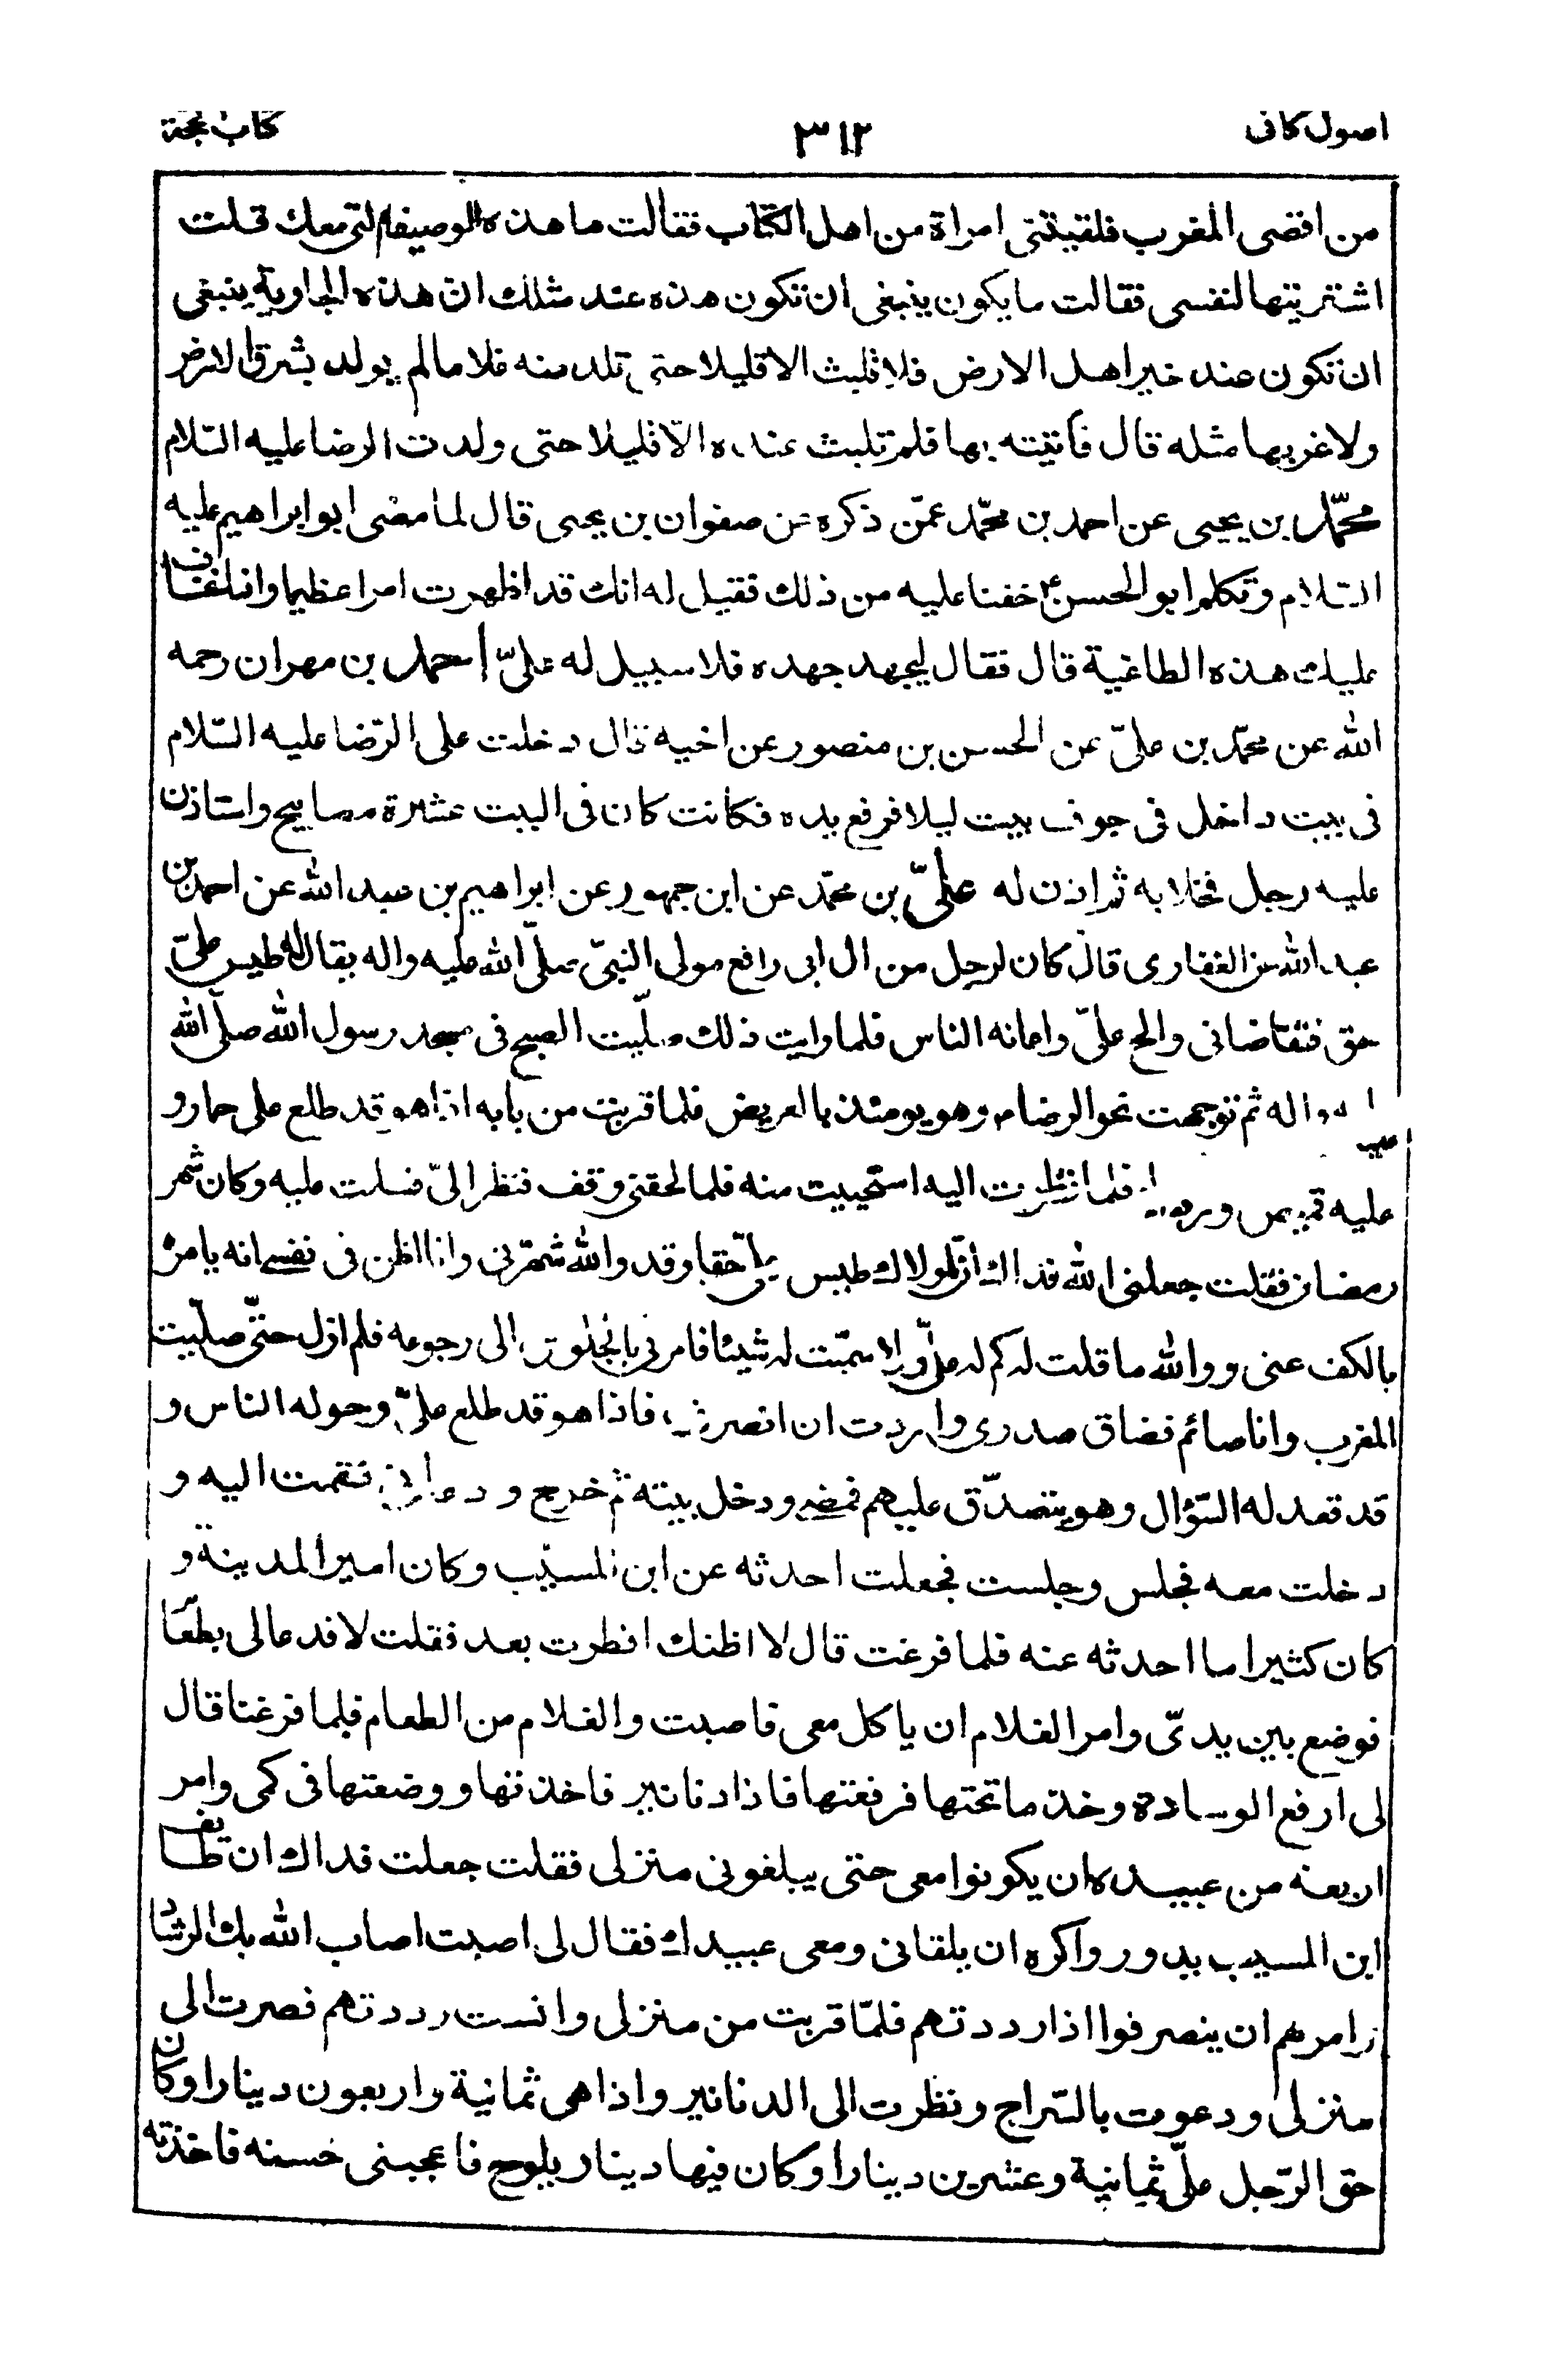 اصول كافى
٣١٢
كتاب الحجة
من اقصى المغرب فلقيتنى امراة من اهل الكتاب فقالت ما هذه الوصيفة التى معك قلت
اشتريتها لنفسى فقالت ما يكون ينبغى ان تكون هذه عند مثلك ان هذه الجارية ينبغى
ان تكون عند خير اهل الارض فلا تلبث الا قليلا حتى تلد منه غلاما لم يولد بشرق الارض
ولا غربها مثله قال فاتيته بها فلم تلبث عنده الّا قليلا حتى ولدت الرضا عليه السّلام
محمّد بن يحيى عن احمد بن محمّد عمّن ذكره عن صفوان بن يحيى قال لما مضى ابو ابراهيم عليه
السّلام وتكلم ابو الحسن ع خفنا عليه من ذلك فقيل له انك قد اظهرت امرا عظيما وانا نخاف
عليك هذه الطاغية قال فقال ليجهد جهده فلا سبيل له علىّ احمد بن مهران رحمه
الله عن محمّد بن علىّ عن الحسن بن منصور عن اخيه قال دخلت على الرّضا عليه السّلام
فى بيت داخل فى جوف بيت ليلا فرفع يده فكانت كان فى البيت عشرة مصابيح واستاذن
عليه رجل فخلا به ثم اذن له علىّ بن محمّد عن ابن جمهور عن ابراهيم بن عبد الله عن احمد بن
عبد الله عن الغفارى قال كان لرجل من ال ابى رافع مولى النبىّ صلّى الله عليه واله يقال له طيس علىّ
حق فتقاضانى والح علىّ واعانه الناس فلما رايت ذلك صلّيت الصبح فى مسجد رسول الله صلّى الله
عليه واله ثم توجهت نحو الرضا ع وهو يومئذ بالعريض فلما قربت من بابه اذا هو قد طلع على حمار و
عليه قميص ورداء فلما نظرت اليه استحييت منه فلما لحقنى وقف فنظر الىّ فسلمت عليه وكان شهر
رمضان فقلت جعلنى الله فداك انّ لمولاك طيس علىّ حقا وقد والله شهّرنى وانا اظن فى نفسى انه يامره
بالكف عنى ووالله ما قلت له كم له علىّ ولا سمّيت له شيئا فامرنى بالجلوس الى رجوعه فلم ازل حتّى صلّيت
المغرب وانا صائم فضاق صدرى واردت ان انصرف فاذا هو قد طلع علىّ وحوله الناس و
قد قعد له السّؤال وهو يتصدّق عليهم فمضى ودخل بيته ثم خرج ودعانى فقمت اليه و
دخلت معه فجلس وجلست فجعلت احدثه عن ابن المسيّب وكان امير المدينة و
كان كثيرا ما احدثه عنه فلما فرغت قال لا اظنك افطرت بعد فقلت لا فدعا لى بطعام
فوضع بين يدىّ وامر الغلام ان ياكل معى فاصبت والغلام من الطعام فلما فرغنا قال
لى ارفع الوسادة وخذ ما تحتها فرفعتها فاذا دنانير فاخذتها ووضعتها فى كمى وامر
اربعة من عبيده ان يكونوا معى حتى يبلغونى منزلى فقلت جعلت فداك ان طايف
ابن المسيب يدور واكره ان يلقانى ومعى عبيدك فقال لى اصبت اصاب الله بك الرشاد
وامرهم ان ينصرفوا اذا رددتهم فلمّا قربت من منزلى وانست رددتهم فصرت الى
منزلى ودعوت بالسّراج ونظرت الى الدنانير واذا هى ثمانية واربعون دينارا وكان
حق الرّجل علىّ ثمانية وعشرين دينارا وكان فيها دينار يلوح فاعجبنى حسنه فاخذته